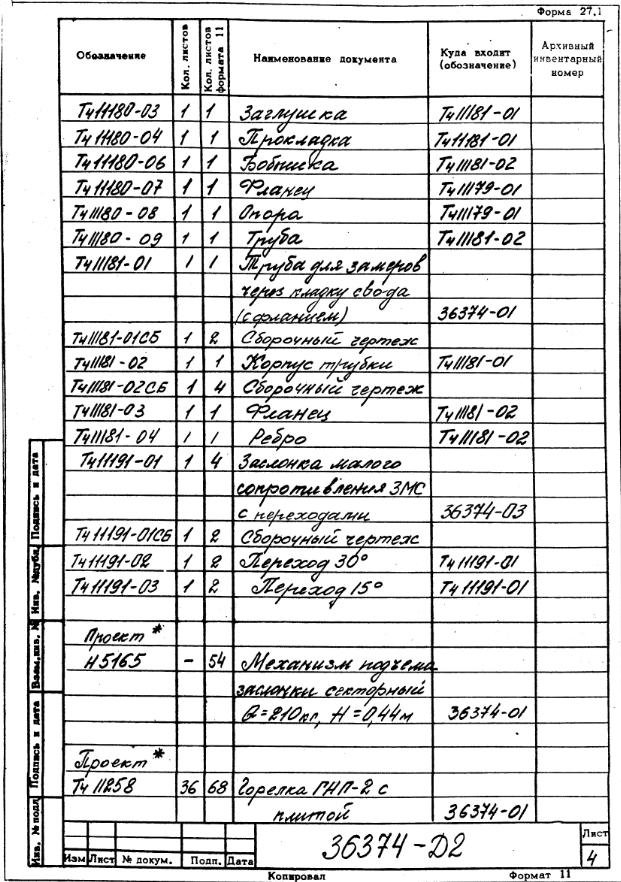 Форма 27,1
Обозначение Кол. листов Кол. листов формата 11 Наименование документа Куда входит (обозначение) Архивный инвентарный номер
Тч11180-03 1 1 Заглушка Тч11181-01
Тч11180-04 1 1 Прокладка Тч11181-01
Тч11180-06 1 1 Бобышка Тч11181-02
Тч11180-07 1 1 Фланец Тч11179-01
Тч11180-08 1 1 Опора Тч11179-01
Тч11180-09 1 1 Труба Тч11181-02
Тч11181-01 1 1 Труба для замеров
через кладку свода
(с фланцем) 36374-01
Тч11181-01СБ 1 2 Сборочный чертеж
Тч11181-02 1 1 Корпус трубки Тч11181-01
Тч11181-02СБ 1 4 Сборочный чертеж
Тч11181-03 1 1 Фланец Тч11181-02
Тч11181-04 1 1 Ребро Тч11181-02
Тч11191-01 1 4 Заслонка малого
сопротивления ЗМС
с переходами 36374-03
Тч11191-01СБ 1 2 Сборочный чертеж
Тч11191-02 1 2 Переход 30° Тч11191-01
Тч11191-03 1 2 Переход 15° Тч11191-01
Проект *
Н5165 - 54 Механизм подъема
заслонки секторный
Q=210кг, H=0,44м 36374-01
Проект *
Тч 11258 36 68 Горелка ГНП-2 с
плитой 36374-01
Инв. № подл. Подпись и дата Взам. инв. № Инв. №дубл. Подпись и дата
Изм Лист № докум. Подп. Дата
36374-Д2
Лист
4
Копировал Формат 11